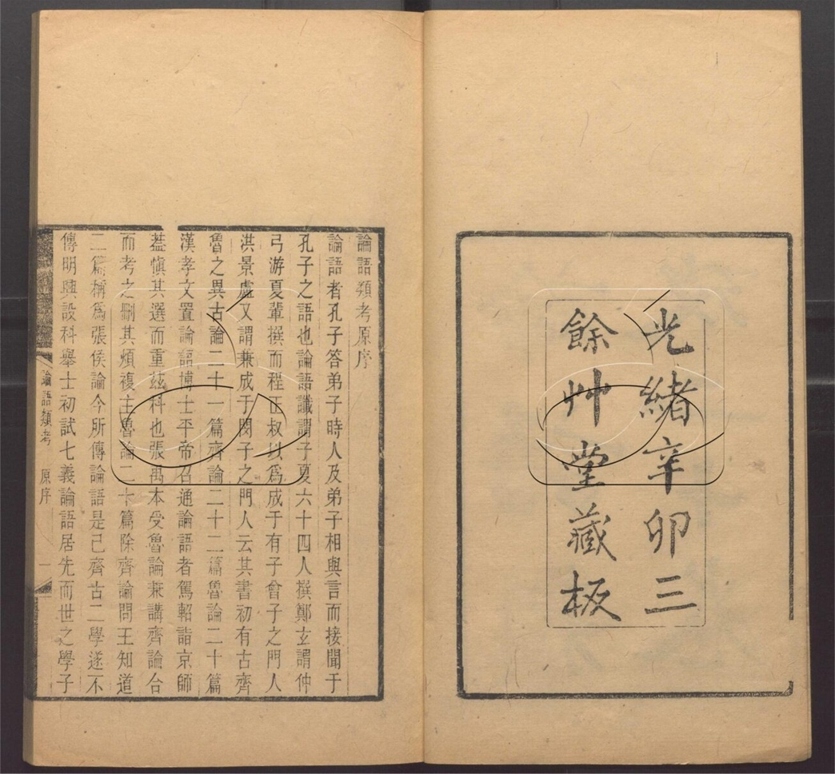 光緒辛卯三
餘艸堂藏板
論語類考原序
論語者孔子答弟子時人及弟子相與言而接聞于
孔子之語也論語讖謂子夏六十四人撰鄭玄謂仲
弓游夏軰撰而程正叔以爲成于有子曾子之門人
洪景盧又謂兼成于閔子之門人云其書初有古齊
魯之異古論二十一篇齊論二十二篇魯論二十篇
漢孝文置論語博士平帝召通論語者駕軺詣京師
葢慎其選而重兹科也張禹本受魯論兼講齊論合
而考之刪其煩複主魯論二十篇除齊論問王知道
二篇稱爲張侯論今所傳論語是已齊古二學遂不
傳明興設科舉士初試七義論語居先而世之學子
論語類考
原序
一